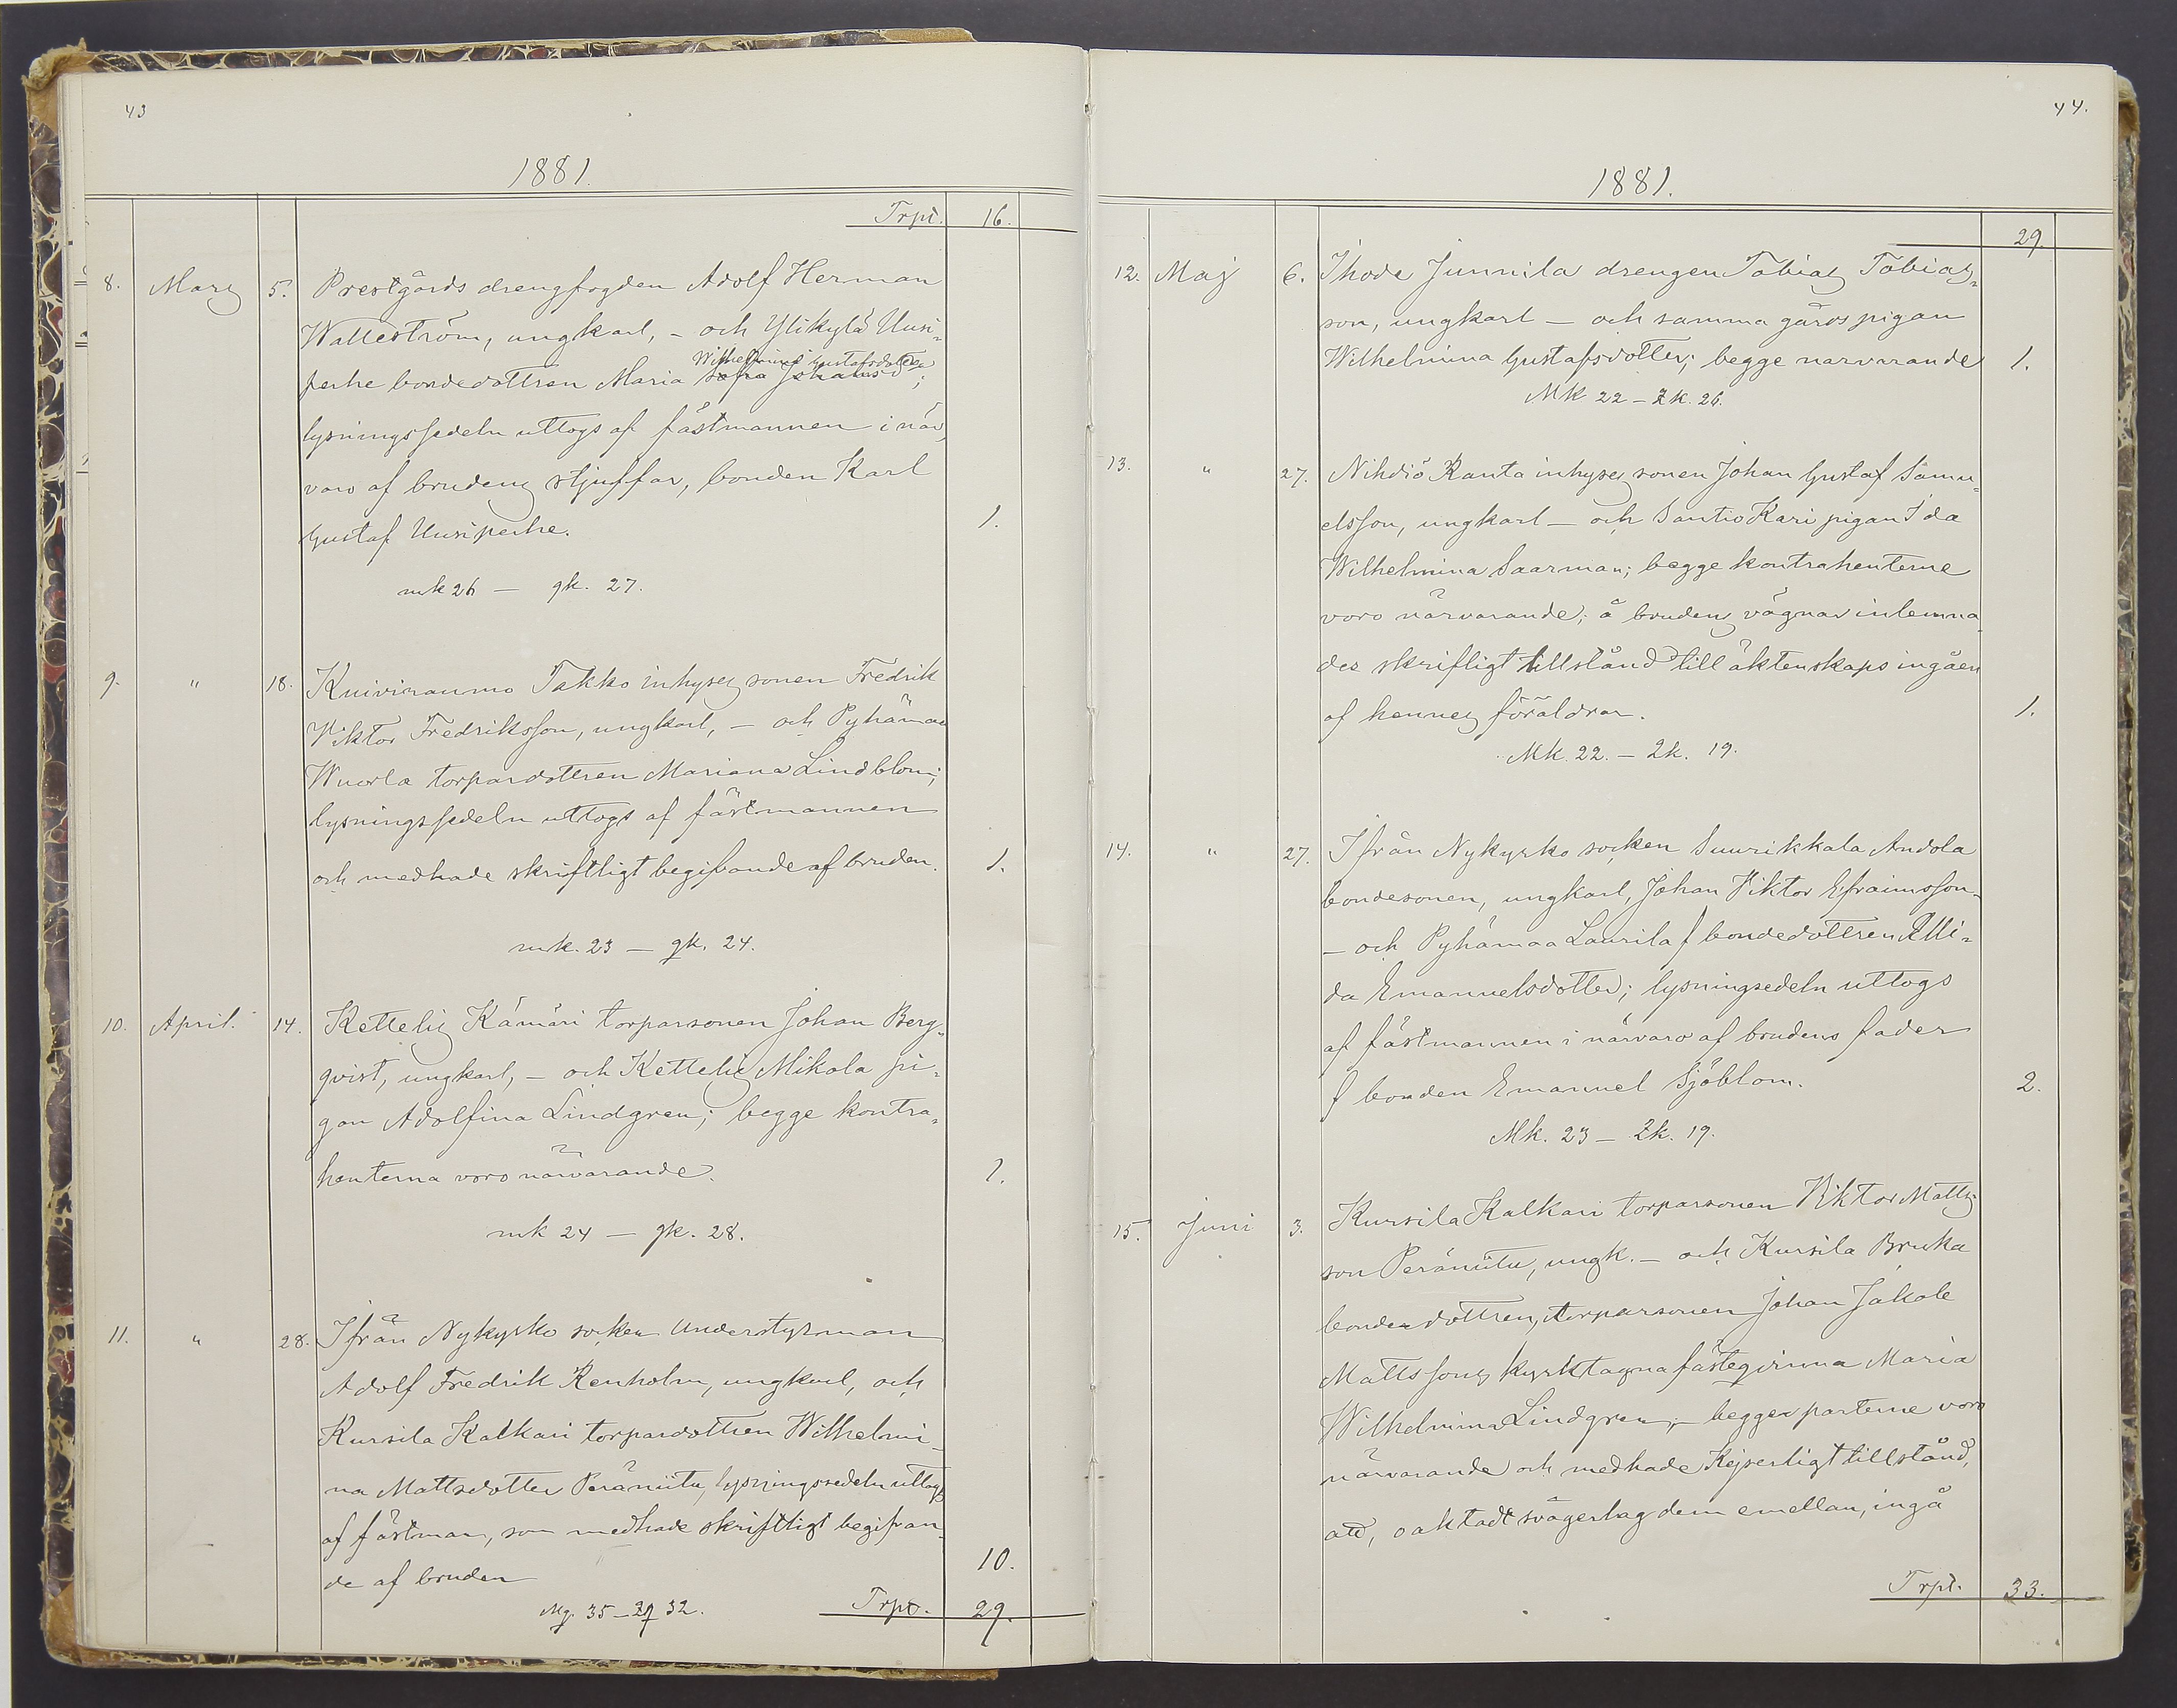 43
1881.
Trpt. 16.
8. Mars 5. Prestgårds drengfogden Adolf Herman
Walleström, ungkarl, – och Ylikylä Uusi-
Wilhelmina Gustafsdotter
perhe bondedottren Maria Sofia Johansd;
lysningssedeln uttogs af fästmannen i när-
varo af brudens stjuffar, bonden Karl
Gustaf Uusiperhe. 1.
mk 26 – qk. 27.
9. " 18. Kuiviraumo Takko inhyses sonen Fredrik
Viktor Fredriksson, ungkarl, – och Pyhämaa
Wuorla torpardottren Mariana Lindblom;
lysningssedeln uttogs af fästmannen
och medhade skriftligt begifvande af bruden. 1.
mk. 23 – qk. 24.
10. April. 14. Kettelis Kämäri torparsonen Johan Berg-
qvist, ungkarl, – och Kettelis Mikola pi-
gan Adolfina Lindgren; begge kontra-
henterna voro närvarande. 1.
mk 24 – qk. 28.
11. " 28. Ifrån Nykyrko socken Understyrman
Adolf Fredrik Renholm, ungkarl, och
Kursila Kalkari torpardottren Wilhelmi-
na Mattsdotter Peräniitu, lysningssedeln uttogs
af fästman, som medhade skriftligt begifvan-
de af bruden 10.
Mg. 35 – 32.
Trpt. 29.
44.
1881.
29.
12. Maj 6. Ihode Junnila drengen Tobias Tobias-
son, ungkarl – och samma gårds pigan
Wilhelmina Gustafsdotter; begge närvarande 1.
Mk 22 – Zk. 26.
13. " 27. Nihdiö Ranta inhyses sonen Johan Gustaf Samu-
elsson, ungkarl – och Santio Kari pigan Ida
Wilhelmina Saarman; begge kontrahenterne
voro närvarande; å brudens vägnar inlemna-
des skrifligt tillstånd till äktenskaps ingåen
af hennes föräldrar. 1.
Mk. 22. – Zk. 19.
14. " 27. Ifrån Nykyrko socken Suurikkala Andola
bondesonen, ungkarl, Johan Viktor Efraimsson-
– och Pyhämaa Laurila f bondedottren Ulli-
da Emanuelsdotter; lysningsedeln uttogs
af fästmannen i närvaro af brudens fader
f bonden Emanuel Sjöblom. 2.
Mk. 23 – Zk. 19.
15. Juni 3. Kursila Kalkari torparsonen Viktor Matts-
son Peräniitu, ungk. – och Kursila Bruka
bondedottren, torparsonen Johan Jakob
Mattssons kyrktagna fästeqvinna Maria
Wilhelmina Lindgren; – begge parterne voro
närvarande och medhade Kejserligt tillstånd,
att, oaktadt svågerlag dem emellan, ingå
Trpt. 33.